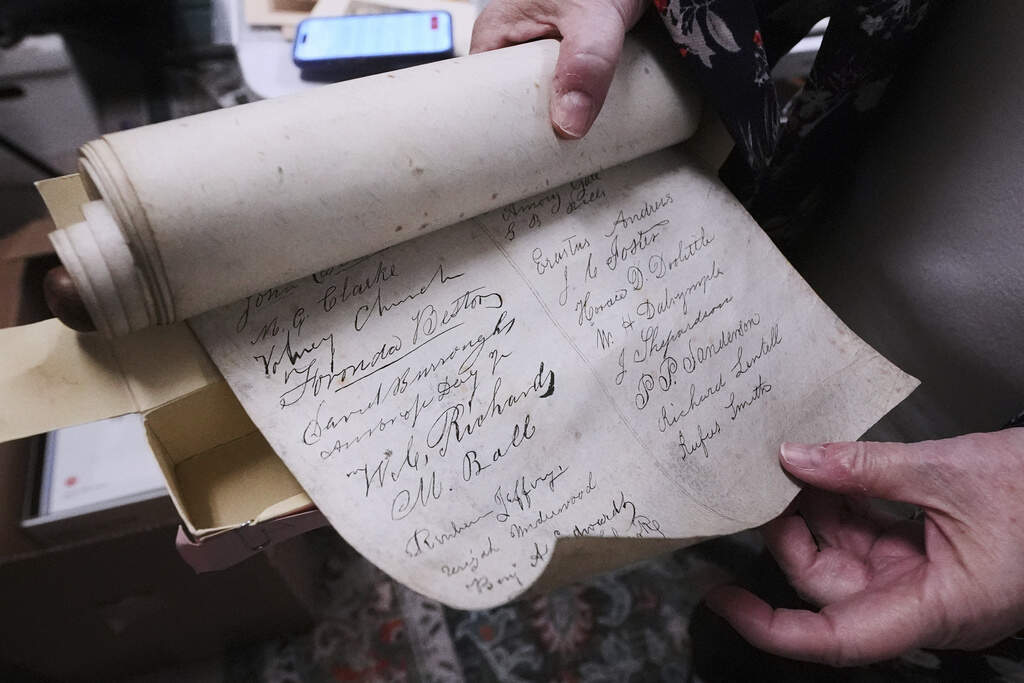 John
N. G. Clarke
Volney Church
Foronda Bestor
David Burroughs
Ambrose Day Jr
W. C. Richards
M. Ball
Reuben Jeffrey
Underwood
Benj A Edwards
Amory Gale
G B
Erastus Andrews
J C Foster
Horace D. Doolittle
W. H Dalrymple
J Shepardson
P. P. Sanderson
Richard Lentell
Rufus Smith